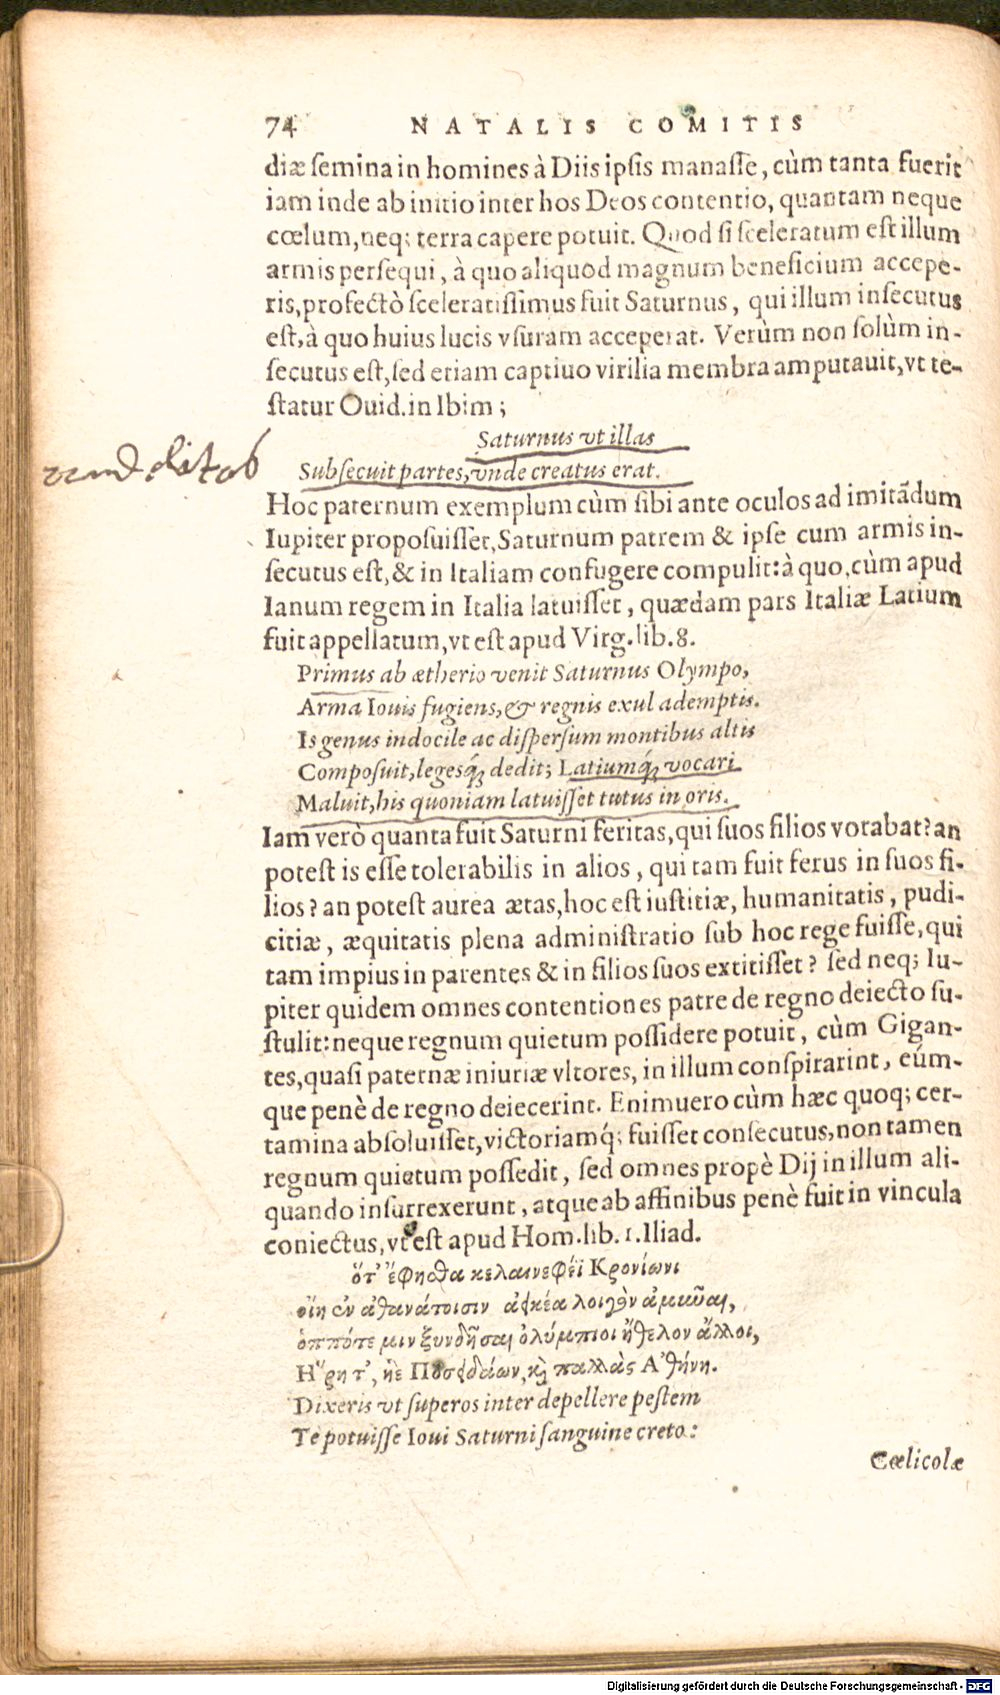 74 NATALIS COMITIS
diæ semina in homines à Diis ipsis manasse, cùm tanta fuerit
iam inde ab initio inter hos Deos contentio, quantam neque
cœlum, neq; terra capere potuit. Quod si sceleratum est illum
armis persequi, à quo aliquod magnum beneficium accepe-
ris, profectò sceleratissimus fuit Saturnus, qui illum insecutus
est, à quo huius lucis vsuram acceperat. Verùm non solùm in-
secutus est, sed etiam captiuo virilia membra amputauit, vt te-
statur Ouid. in Ibim;
Saturnus vt illas
Subsecuit partes, vnde creatus erat.
Hoc paternum exemplum cùm sibi ante oculos ad imitãdum
Iupiter proposuisset, Saturnum patrem & ipse cum armis in-
secutus est, & in Italiam confugere compulit: à quo, cùm apud
Ianum regem in Italia latuisset, quædam pars Italiæ Latium
fuit appellatum, vt est apud Virg. lib. 8.
Primus ab ætherio venit Saturnus Olympo,
Arma Iouis fugiens, & regnis exul ademptis.
Is genus indocile ac dispersum montibus altis
Composuit, legesq́; dedit; Latiumq́; vocari
Maluit, his quoniam latuisset tutus in oris.
Iam verò quanta fuit Saturni feritas, qui suos filios vorabat? an
potest is esse tolerabilis in alios, qui tam fuit ferus in suos fi-
lios? an potest aurea ætas, hoc est iustitiæ, humanitatis, pudi-
citiæ, æquitatis plena administratio sub hoc rege fuisse, qui
tam impius in parentes & in filios suos extitisset? sed neq; Iu-
piter quidem omnes contentiones patre de regno deiecto su-
stulit: neque regnum quietum possidere potuit, cùm Gigan-
tes, quasi paternæ iniuriæ vltores, in illum conspirarint, eúm-
que penè de regno deiecerint. Enimuero cùm hæc quoq; cer-
tamina absoluisset, victoriamq́; fuisset consecutus, non tamen
regnum quietum possedit, sed omnes propè Dij in illum ali-
quando insurrexerunt, atque ab affinibus penè fuit in vincula
coniectus, vt est apud Hom. lib. 1. Iliad.
ὅτ᾽ ἔφησθα κελαινεφέϊ Κρονίωνι
οἴη ἐν ἀθανάτοισιν ἀεικέα λοιγὸν ἀμιῦναι,
ὁππότε μιν ξυνδῆσαι ὀλύμπιοι ἤθελον ἄλλοι,
Ἥρη τ᾽, ἠὲ Ποσειδάων, καὶ παλλὰς Ἀθήνη.
Dixeris vt superos inter depellere pestem
Te potuisse Ioui Saturni sanguine creto:
Cœlicolæ
Digitalisierung gefördert durch die Deutsche Forschungsgemeinschaft - DFG